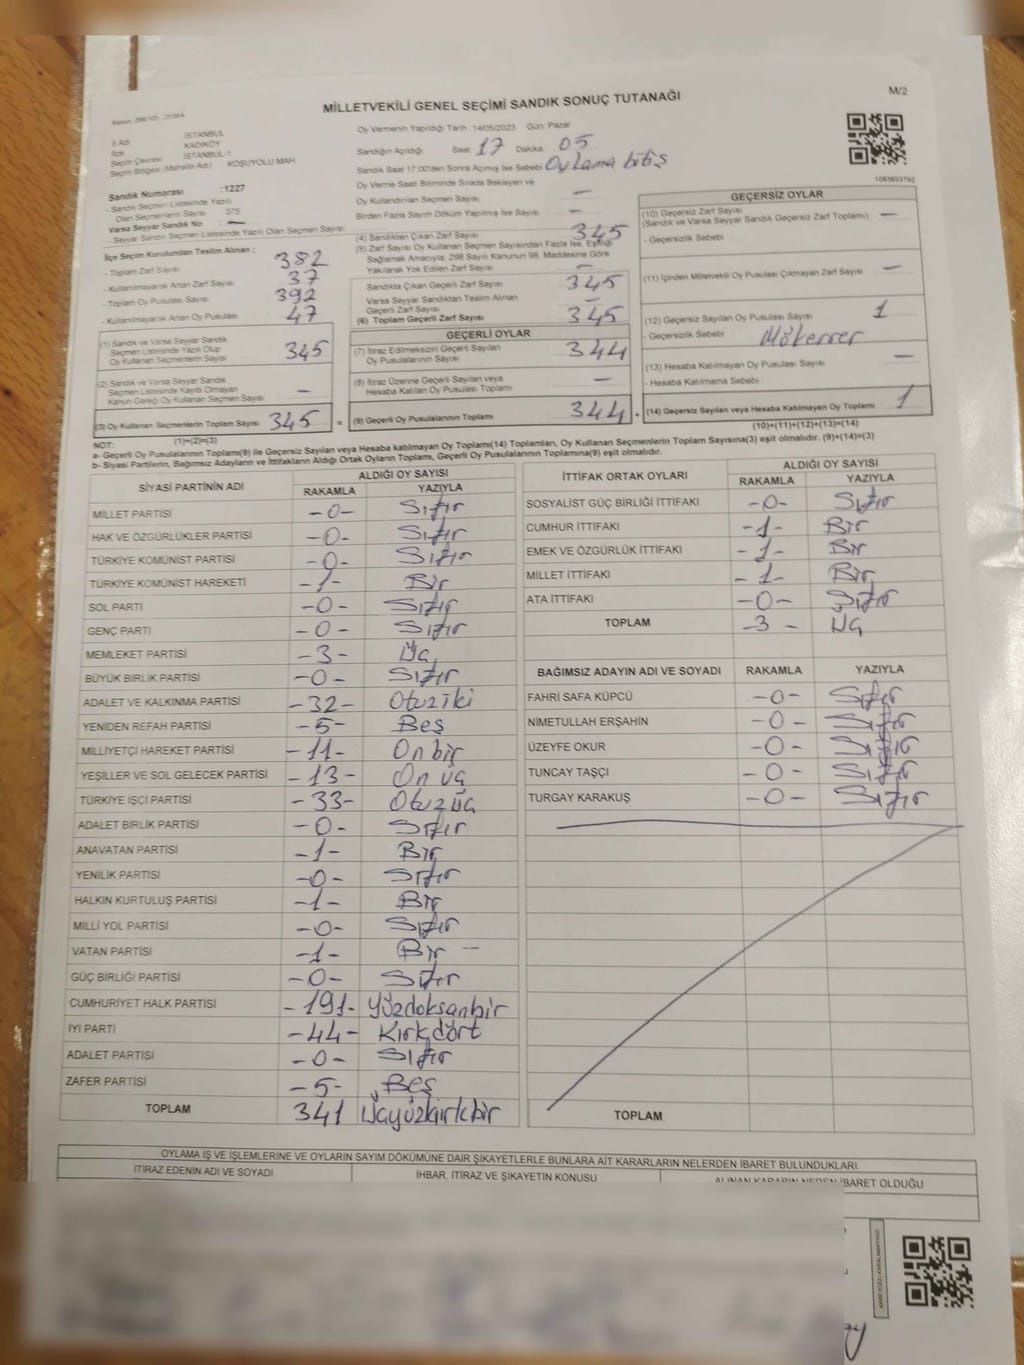 MİLLETVEKİLİ GENEL SEÇİMİ SANDIK SONUÇ TUTANAĞI
M/2
İl Adı İSTANBUL
İlçe KADIKÖY
Seçim Çevresi İSTANBUL-1
Seçim Bölgesi (Mahalle Adı) KOŞUYOLU MAH
Sandık Numarası :1227
- Sandık Seçmen Listesinde Yazılı
Olan Seçmenlerin Sayısı 375
Varsa Seyyar Sandık No : —
- Seyyar Sandık Seçmen Listesinde Yazılı Olan Seçmen Sayısı
İlçe Seçim Kurulundan Teslim Alınan :
- Toplam Zarf Sayısı 382
- Kullanılmayarak Artan Zarf Sayısı 37
- Toplam Oy Pusulası Sayısı 392
- Kullanılmayarak Artan Oy Pusulası 47
(1) Sandık ve Varsa Seyyar Sandık
Seçmen Listesinde Yazılı Olup
Oy Kullanan Seçmenlerin Sayısı 345
(2) Sandık ve Varsa Seyyar Sandık
Seçmen Listesinde Kayıtlı Olmayan
Kanun Gereği Oy Kullanan Seçmen Sayısı —
(3) Oy Kullanan Seçmenlerin Toplam Sayısı 345 =
(1)+(2)=(3)
Oy Vermenin Yapıldığı Tarih :14/05/2023 Gün: Pazar
Sandığın Açıldığı Saat: 17 Dakika: 05
Sandık Saat 17:00'den Sonra Açılmış İse Sebebi Oylama bitiş
Oy Verme Saati Bitiminde Sırada Bekleyen ve
Oy Kullandırılan Seçmen Sayısı —
Birden Fazla Sayım Döküm Yapılmış İse Sayısı —
(4) Sandıktan Çıkan Zarf Sayısı 345
(5) Zarf Sayısı Oy Kullanan Seçmen Sayısından Fazla İse, Eşitliği
Sağlamak Amacıyla; 298 Sayılı Kanunun 98. Maddesine Göre
Yakılarak Yok Edilen Zarf Sayısı —
Sandıkta Çıkan Geçerli Zarf Sayısı 345
Varsa Seyyar Sandıktan Teslim Alınan
Geçerli Zarf Sayısı —
(6) Toplam Geçerli Zarf Sayısı 345
GEÇERLİ OYLAR
(7) İtiraz Edilmeksizin Geçerli Sayılan
Oy Pusulalarının Sayısı 344
(8) İtiraz Üzerine Geçerli Sayılan veya
Hesaba Katılan Oy Pusulası Toplamı —
(9) Geçerli Oy Pusulalarının Toplamı 344 +
1083653792
GEÇERSİZ OYLAR
(10) Geçersiz Zarf Sayısı
(Sandık ve Varsa Seyyar Sandık Geçersiz Zarf Toplamı) —
- Geçersizlik Sebebi :
(11) İçinden Milletvekili Oy Pusulası Çıkmayan Zarf Sayısı —
(12) Geçersiz Sayılan Oy Pusulası Sayısı 1
- Geçersizlik Sebebi : Mükerrer
(13) Hesaba Katılmayan Oy Pusulası Sayısı —
- Hesaba Katılmama Sebebi :
(14) Geçersiz Sayılan veya Hesaba Katılmayan Oy Toplamı 1
(10)+(11)+(12)+(13)=(14)
NOT:
a- Geçerli Oy Pusulalarının Toplamı(9) ile Geçersiz Sayılan veya Hesaba katılmayan Oy Toplamı(14) Toplamları, Oy Kullanan Seçmenlerin Toplam Sayısına(3) eşit olmalıdır. (9)+(14)=(3)
b- Siyasi Partilerin, Bağımsız Adayların ve İttifakların Aldığı Ortak Oyların Toplamı, Geçerli Oy Pusulalarının Toplamına(9) eşit olmalıdır.
SİYASİ PARTİNİN ADI ALDIĞI OY SAYISI
RAKAMLA YAZIYLA
MİLLET PARTİSİ -0- Sıfır
HAK VE ÖZGÜRLÜKLER PARTİSİ -0- Sıfır
TÜRKİYE KOMÜNİST PARTİSİ -0- Sıfır
TÜRKİYE KOMÜNİST HAREKETİ -1- Bir
SOL PARTİ -0- Sıfır
GENÇ PARTİ -0- Sıfır
MEMLEKET PARTİSİ -3- Üç
BÜYÜK BİRLİK PARTİSİ -0- Sıfır
ADALET VE KALKINMA PARTİSİ -32- Otuziki
YENİDEN REFAH PARTİSİ -5- Beş
MİLLİYETÇİ HAREKET PARTİSİ -11- Onbir
YEŞİLLER VE SOL GELECEK PARTİSİ -13- On üç
TÜRKİYE İŞÇİ PARTİSİ -33- Otuzüç
ADALET BİRLİK PARTİSİ -0- Sıfır
ANAVATAN PARTİSİ -1- Bir
YENİLİK PARTİSİ -0- Sıfır
HALKIN KURTULUŞ PARTİSİ -1- Bir
MİLLİ YOL PARTİSİ -0- Sıfır
VATAN PARTİSİ -1- Bir —
GÜÇ BİRLİĞİ PARTİSİ -0- Sıfır
CUMHURİYET HALK PARTİSİ -191- Yüzdoksanbir
İYİ PARTİ -44- Kırkdört
ADALET PARTİSİ -0- Sıfır
ZAFER PARTİSİ -5- Beş
TOPLAM 341 Üçyüzkırkbir
İTTİFAK ORTAK OYLARI ALDIĞI OY SAYISI
RAKAMLA YAZIYLA
SOSYALİST GÜÇ BİRLİĞİ İTTİFAKI -0- Sıfır
CUMHUR İTTİFAKI -1- Bir
EMEK VE ÖZGÜRLÜK İTTİFAKI -1- Bir
MİLLET İTTİFAKI -1- Bir
ATA İTTİFAKI -0- Sıfır
TOPLAM -3- Üç
BAĞIMSIZ ADAYIN ADI VE SOYADI RAKAMLA YAZIYLA
FAHRİ SAFA KÜPCÜ -0- Sıfır
NİMETULLAH ERŞAHİN -0- Sıfır
ÜZEYFE OKUR -0- Sıfır
TUNCAY TAŞÇI -0- Sıfır
TURGAY KARAKUŞ -0- Sıfır
TOPLAM
OYLAMA İŞ VE İŞLEMLERİNE VE OYLARIN SAYIM DÖKÜMÜNE DAİR ŞİKAYETLERLE BUNLARA AİT KARARLARIN NELERDEN İBARET BULUNDUKLARI
İTİRAZ EDENİN ADI VE SOYADI İHBAR, İTİRAZ VE ŞİKAYETİN KONUSU ALINAN KARARIN NEDEN İBARET OLDUĞU